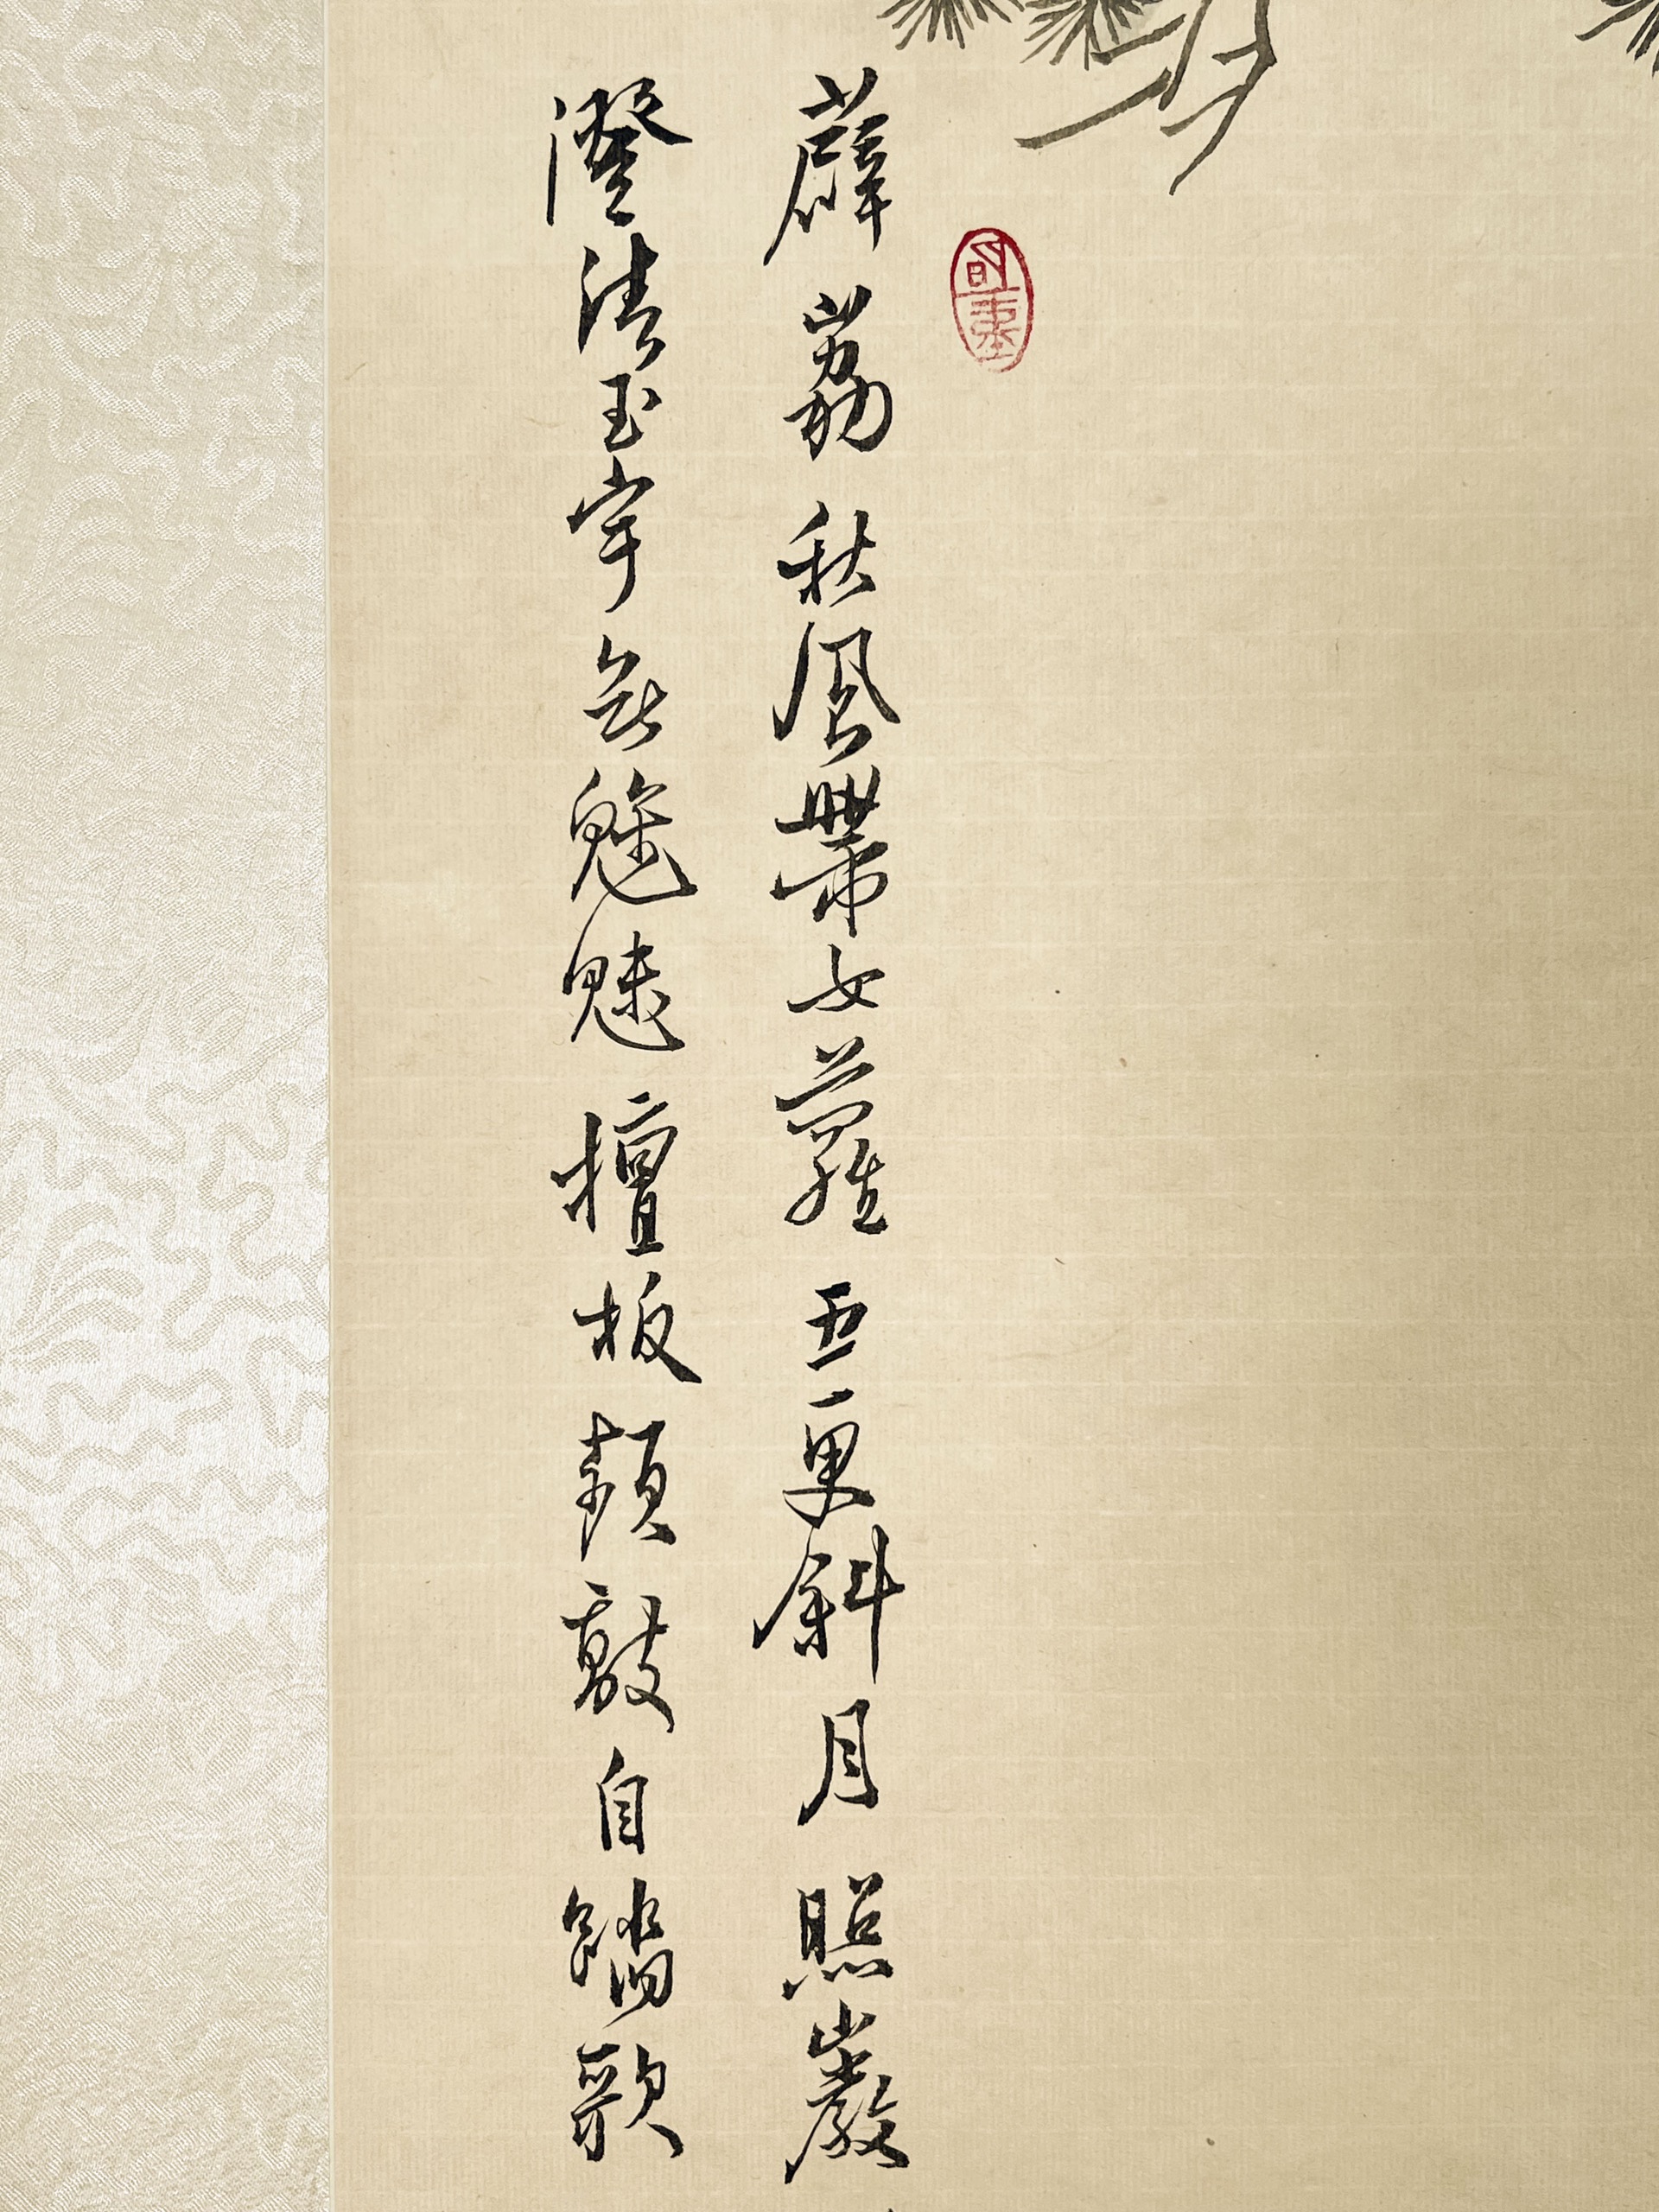 薜荔秋風帶女蘿五更斜月照巖
澄清玉宇無魑魅檀板頻敲自踏歌